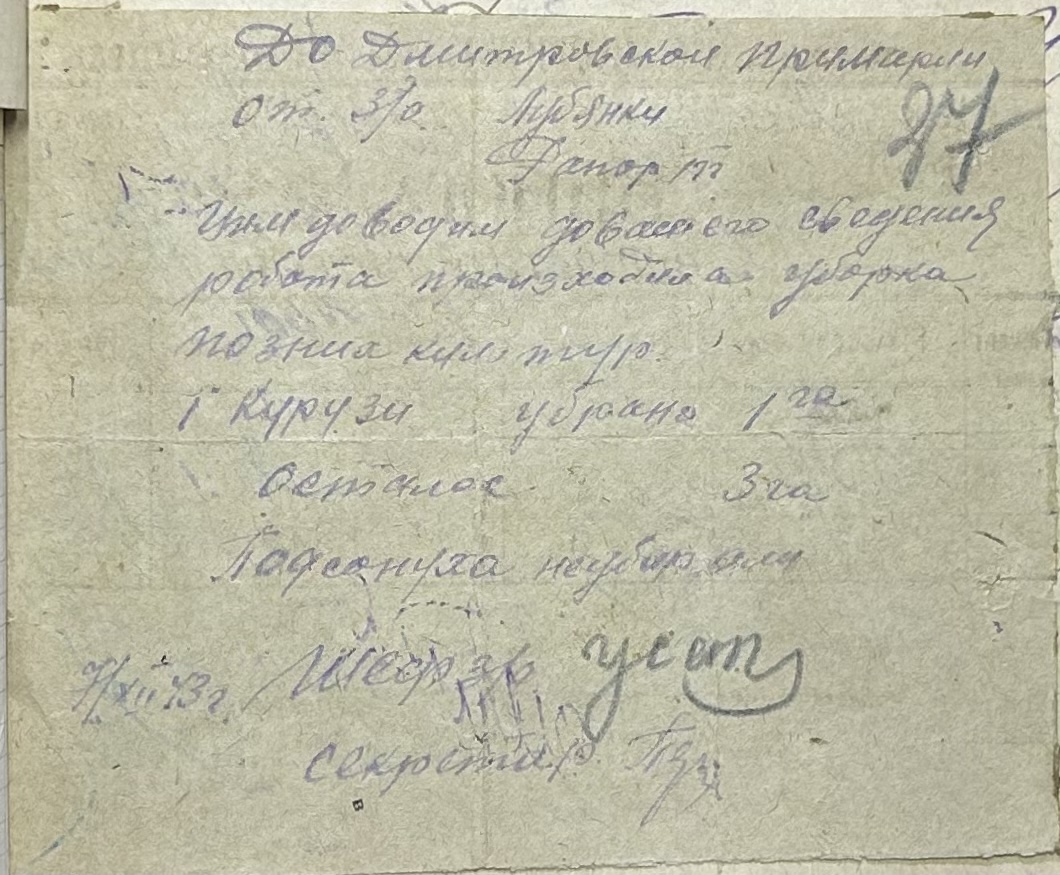 До Дмитровской Примарии
от. З/о Лубянки
27
Рапорт
Цим доводим довашего сведения
робота произходила уборка
позних култур.
1 Курузи убрано 1 га
осталос 3 га
Подсонуха неубирали
7/XII 43 г. Шеф з/о
секретар
в